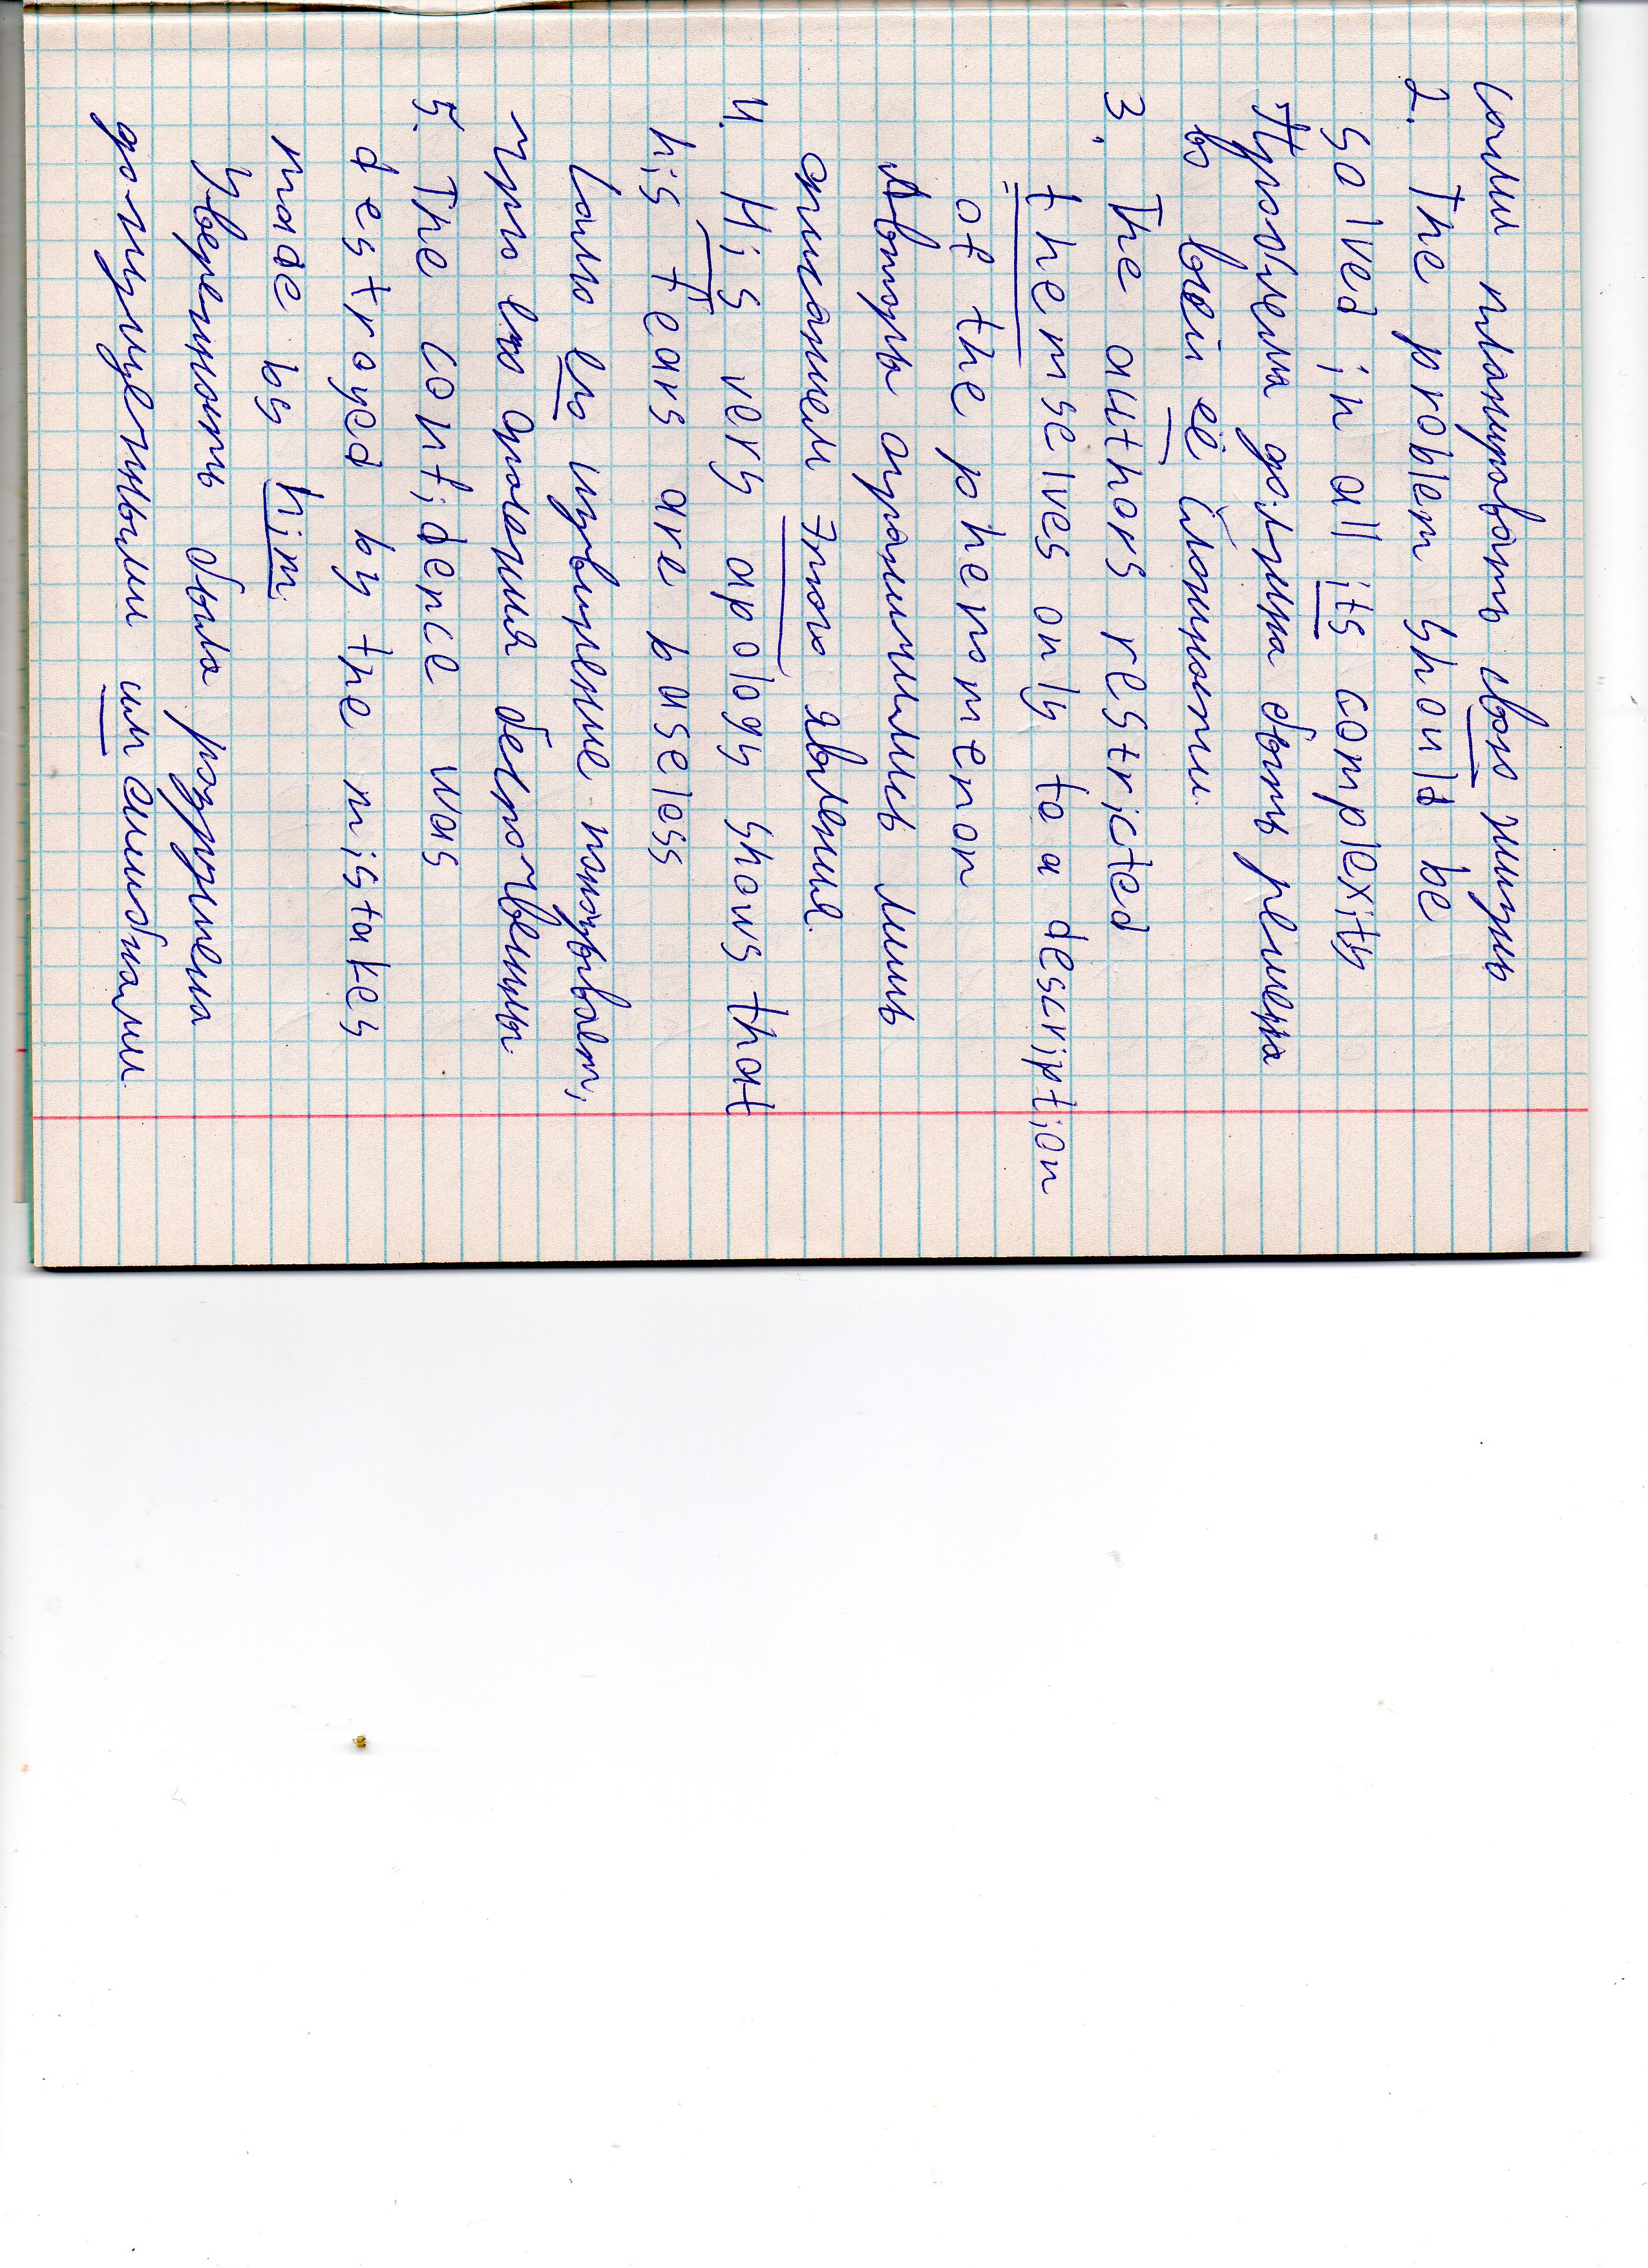 сами планировать свою жизнь
2. The problem should be
solved in all its complexity
Проблема должна быть решена
во всей её сложности.
3. The authors restricted
themselves only to a description
of the phenomenon
Авторы ограничились лишь
описанием этого явления.
4. His very apology shows that
his fears are baseless
Само его извинение показывает,
что его опасения беспочвенны.
5. The confidence was
destroyed by the mistakes
made by him.
Уверенность была разрушена
допущенными им ошибками.